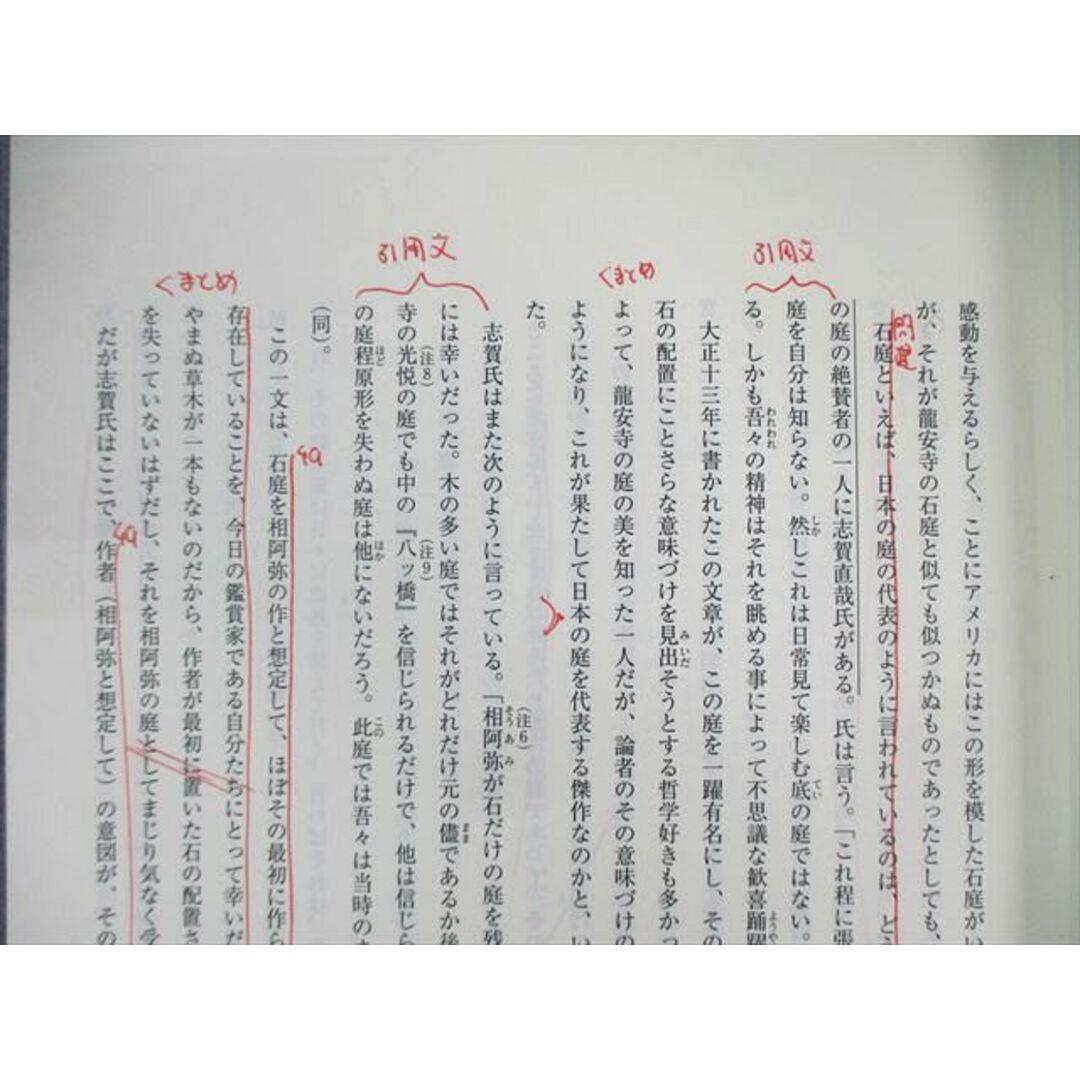 引用文
くまとめ
引用文
くまとめ
感動を与えるらしく、ことにアメリカにはこの形を模した石庭がい
が、それが龍安寺の石庭と似ても似つかぬものであったとしても、
問題
石庭といえば、日本の庭の代表のように言われているのは、どう
の庭の絶賛者の一人に志賀直哉氏がある。氏は言う。「これ程に張
庭を自分は知らない。然しこれは日常見て楽しむ底の庭ではない。
しか
てい
る。しかも吾々の精神はそれを眺める事によって不思議な歓喜踊躍
われわれ
ようやく
大正十三年に書かれたこの文章が、この庭を一躍有名にし、その
石の配置にことさらな意味づけを見出そうとする哲学好きも多かっ
みいだ
よって、龍安寺の庭の美を知った一人だが、論者のその意味づけの
ようになり、これが果たして日本の庭を代表する傑作なのかと、い
た。
志賀氏はまた次のように言っている。「相阿弥が石だけの庭を残
(注6)
そうあみ
には幸いだった。木の多い庭ではそれがどれだけ元の儘であるか後
まま
寺の光悦の庭でも中の『八ッ橋』を信じられるだけで、他は信じら
(注8)
(注9)
の庭程原形を失わぬ庭は他にないだろう。此庭では吾々は当時の
ほど
ほか
この
(同)。
この一文は、石庭を相阿弥の作と想定して、ほぼその最初に作ら
存在していることを、今日の鑑賞家である自分たちにとって幸いだ
やまぬ草木が一本もないのだから、作者が最初に置いた石の配置さ
を失っていないはずだし、それを相阿弥の庭としてまじり気なく受
だが志賀氏はここで、作者（相阿弥と想定して）の意図が、その